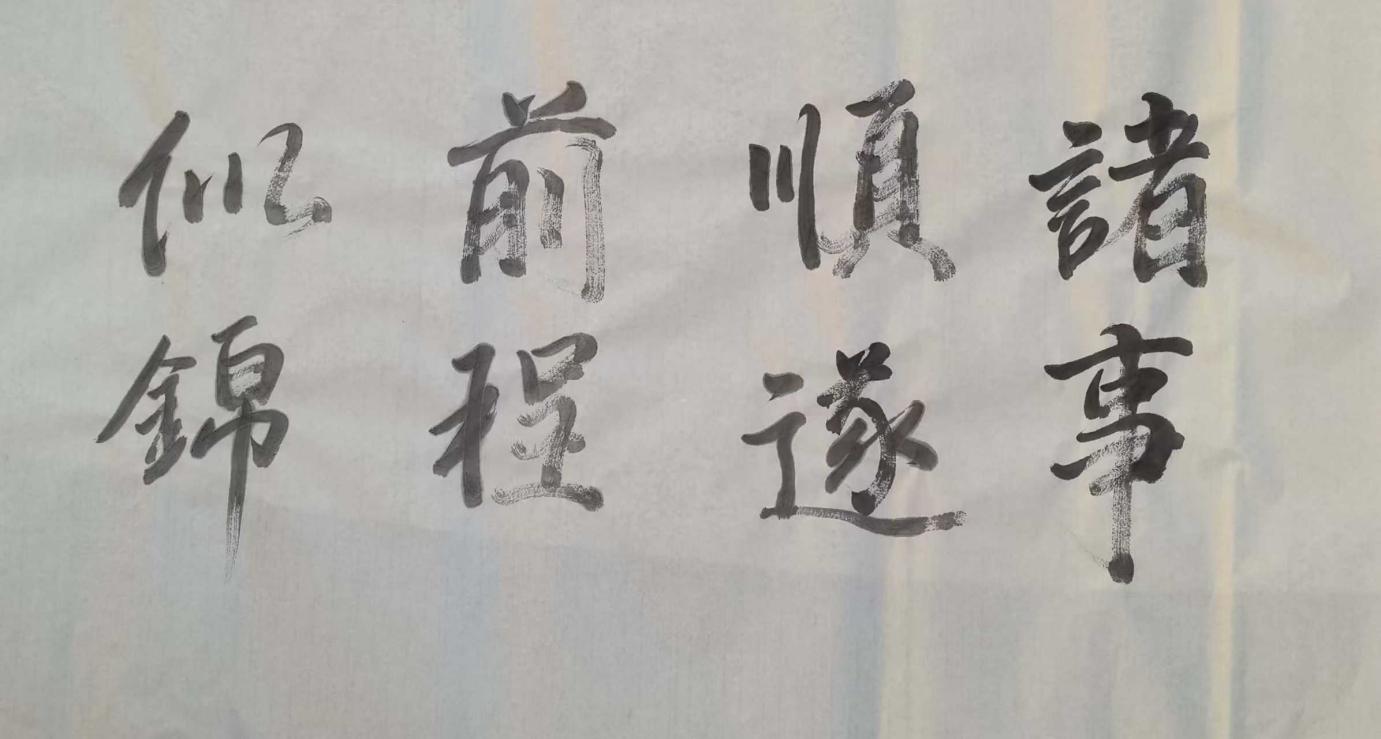 諸事
順遂
前程
似錦